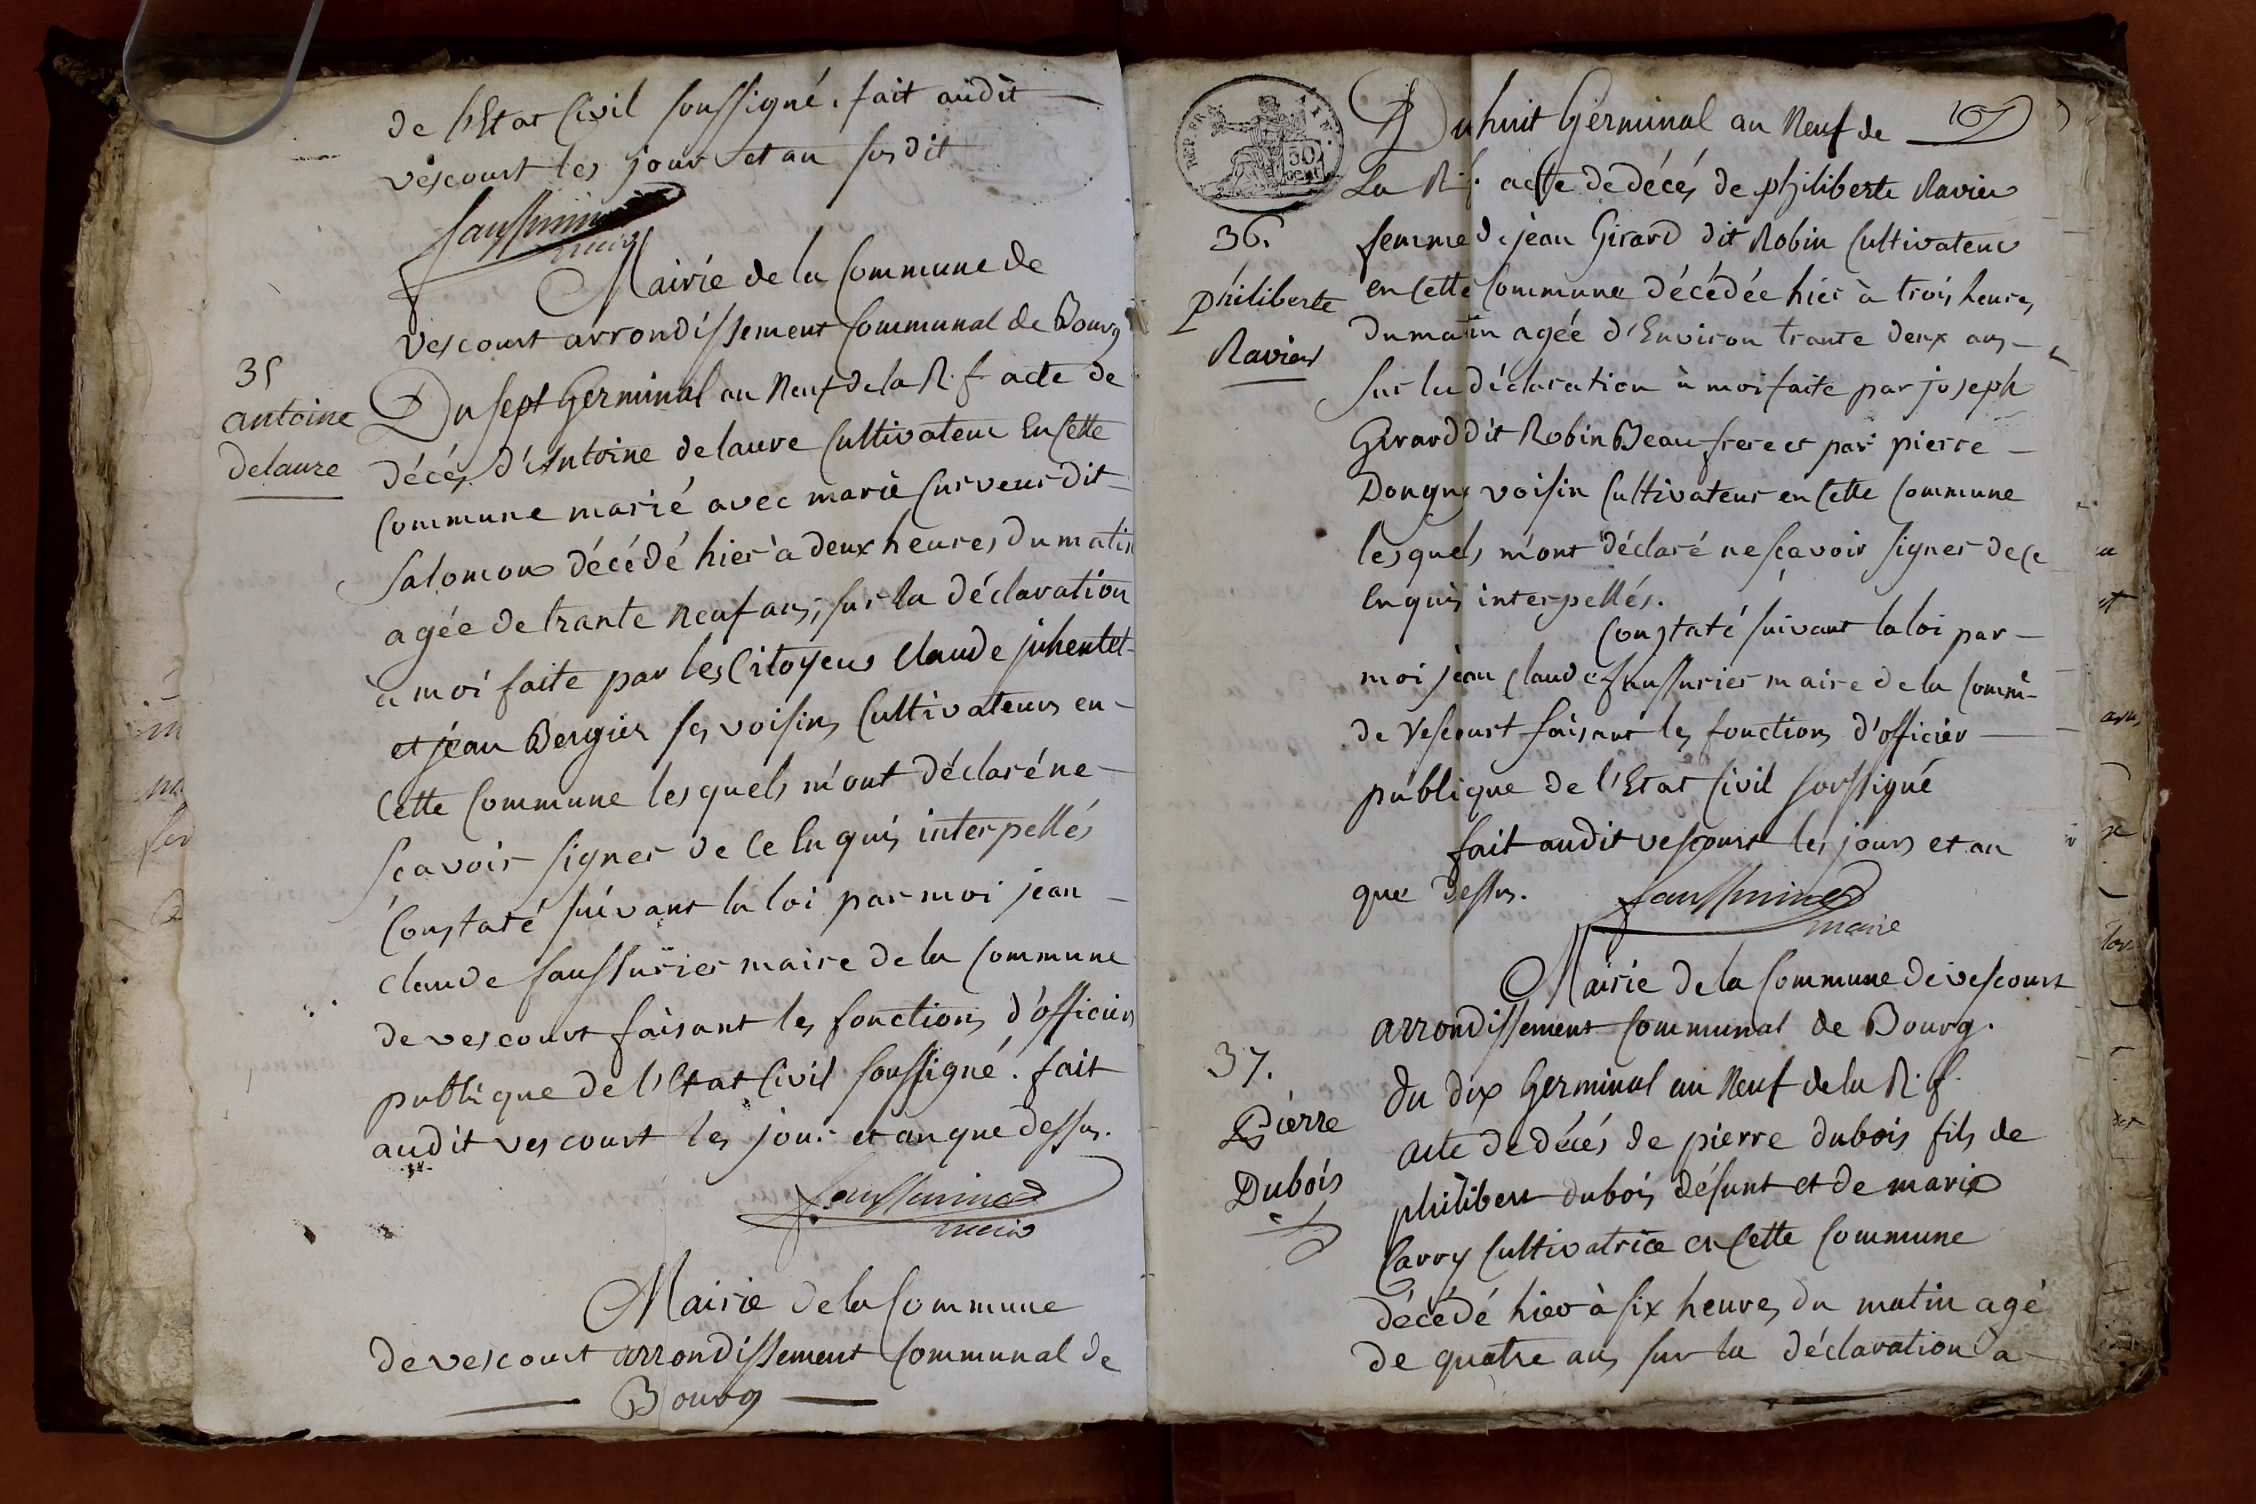 de l'Etat Civil soussigné. fait audit
vescourt les jour et an susdit
Maírie de la Commune de
Vescourt arrondissement Communal de Bourg
35
antoine
delaure
Du sept Germinal an Neuf de la R. f. acte de
décés d'Antoine delaure Cultivateur En Cette
Commune marié avec marie dit
Salomon décédé hier à deux heures du matin
agée de trante neuf ans, sur la déclaration
à moi faite par les Citoyens Claude
et jean Bergier ses voisins Cultivateurs en
Cette Commune lesquels m'ont déclaré ne
Scavoir signer de Ce Enquis interpellés
Constaté suivant la loi par moi jean
claude maire de la Commune
de vescourt faisant les fonctions d'officier
publique de l'Etat Civil soussigné. fait
audit vescourt les jour et an que dessus.
Mairie de la Commune
de vescourt arrondissement Communal de
Bourg
REP. FRA.
50
CENT.
Du huit Germinal an Neuf de
La R. f. acte de décés de philiberte Ravier
36.
philiberte
Ravier
femme de jean Girard dit Robin Cultivateur
en Cette Commune décédée hier à trois heures
du matin agée d'Environ trante deux ans
Sur la déclaration à moi faite par joseph
Girard dit Robin Beau frere et par pierre
voisin Cultivateur en Cette Commune
lesquels m'ont déclaré ne scavoir signer de Ce
Enquis interpellés.
Constaté suivant la loi par
moi jean Claude maire de la Comm.
de Vescourt faisant les fonctions d'officier
publique de l'Etat Civil soussigné
fait audit vescourt les jours et an
que dessus.
maire
Mairie de la Commune de vescourt
arrondissement Communal de Bourg.
37.
Pierre
Dubois
du dix Germinal an Neuf de la R. f.
acte de décés de pierre dubois fils de
philibert dubois défunt et de marie
Carry Cultivatrice en Cette Commune
décédé hier à six heures du matin agé
de quatre ans sur la déclaration a